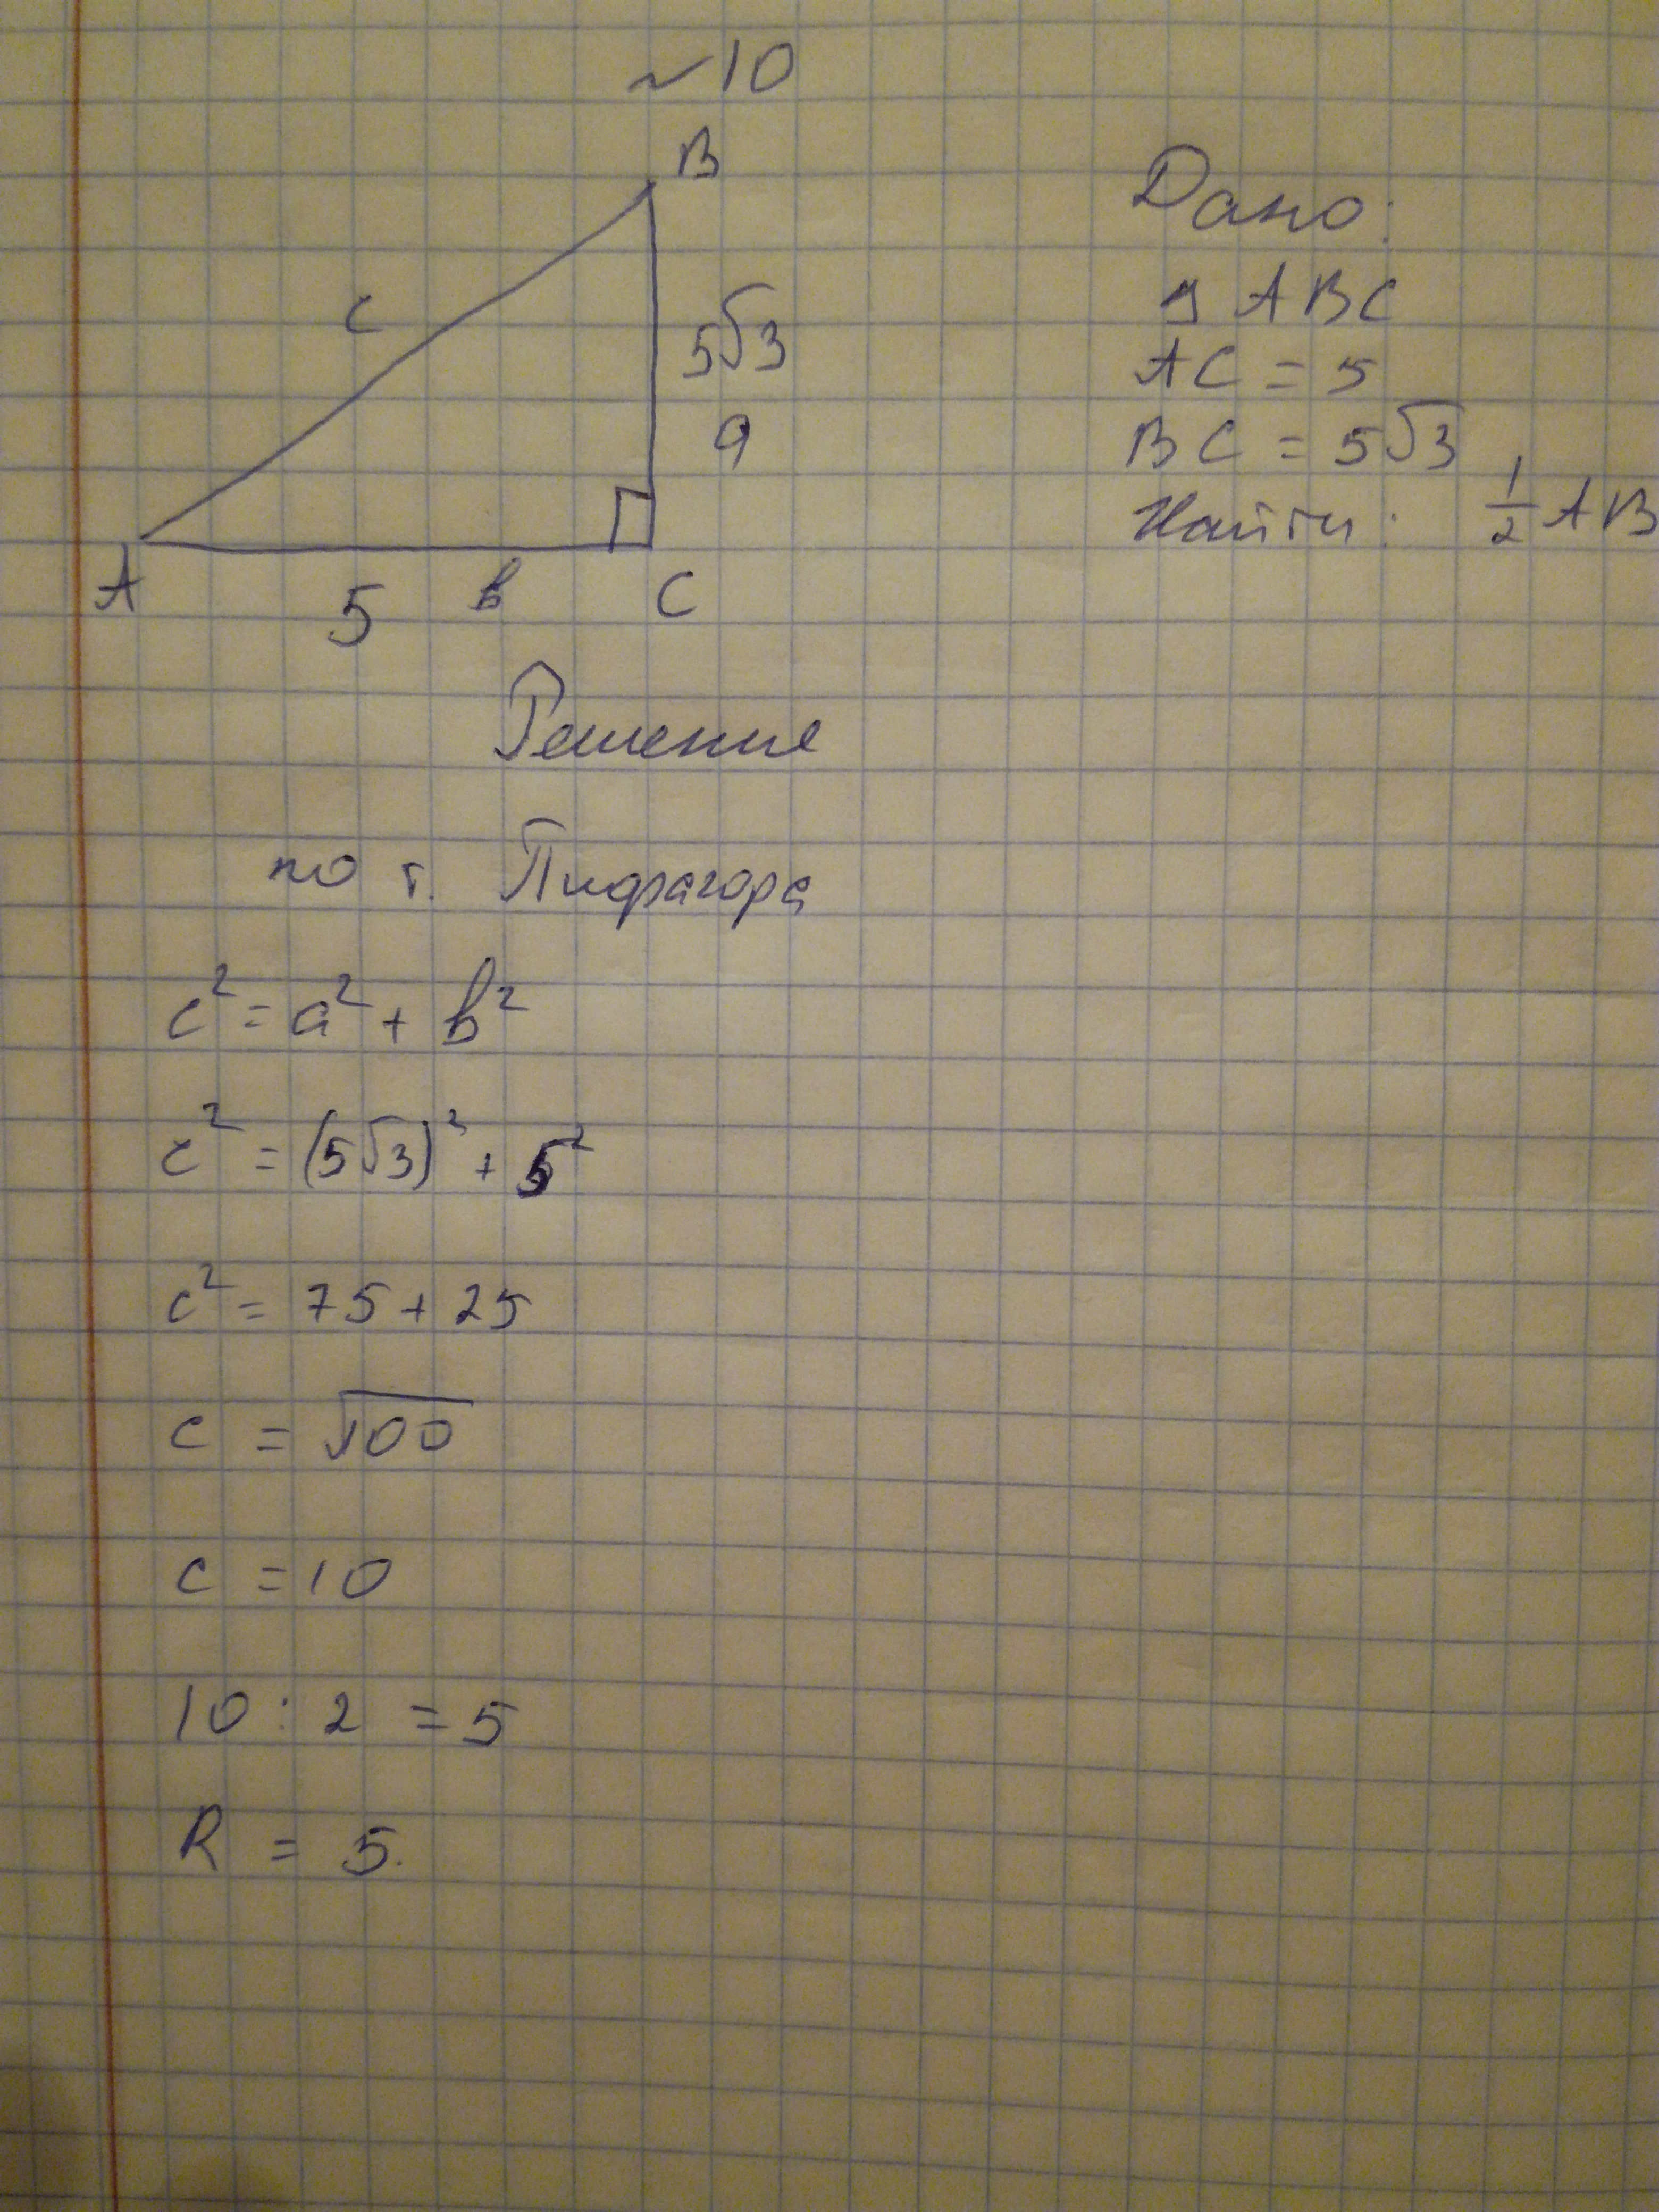 ~10
B
c
5√3
a
A
5
b
C
Дано:
ABC
AC = 5
BC = 5√3
Найти: 1/2 AB
Решение
по т. Пифагора
c² = a² + b²
c² = (5√3)² + 5²
c² = 75 + 25
c = √100
c = 10
10 : 2 = 5
R = 5.